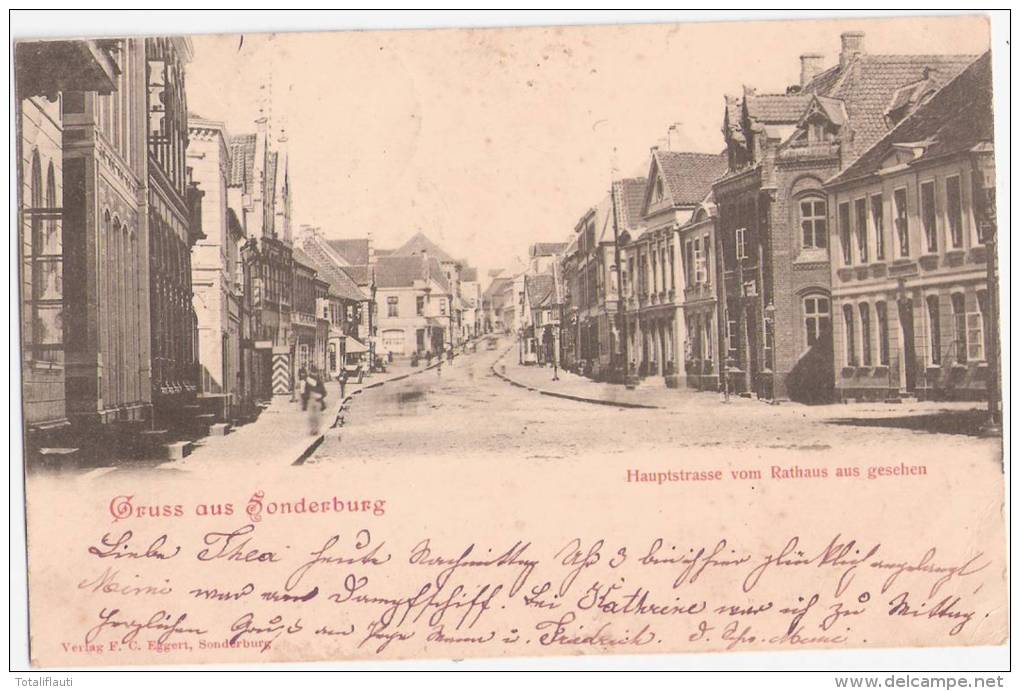 Hauptstrasse vom Rathaus aus gesehen
Gruss aus Sonderburg
Liebe Thea heute Nachmittag Uhr 3 bin ich hier glücklich angelangt,
Mimi war am Dampfschiff. Bei Kathrine war ich zu Mittag.
Herzlichen Gruß an Mann u. Friedrich. Mimi.
Verlag F. C. Eggert, Sonderburg
Totaliflauti
www.delcampe.net